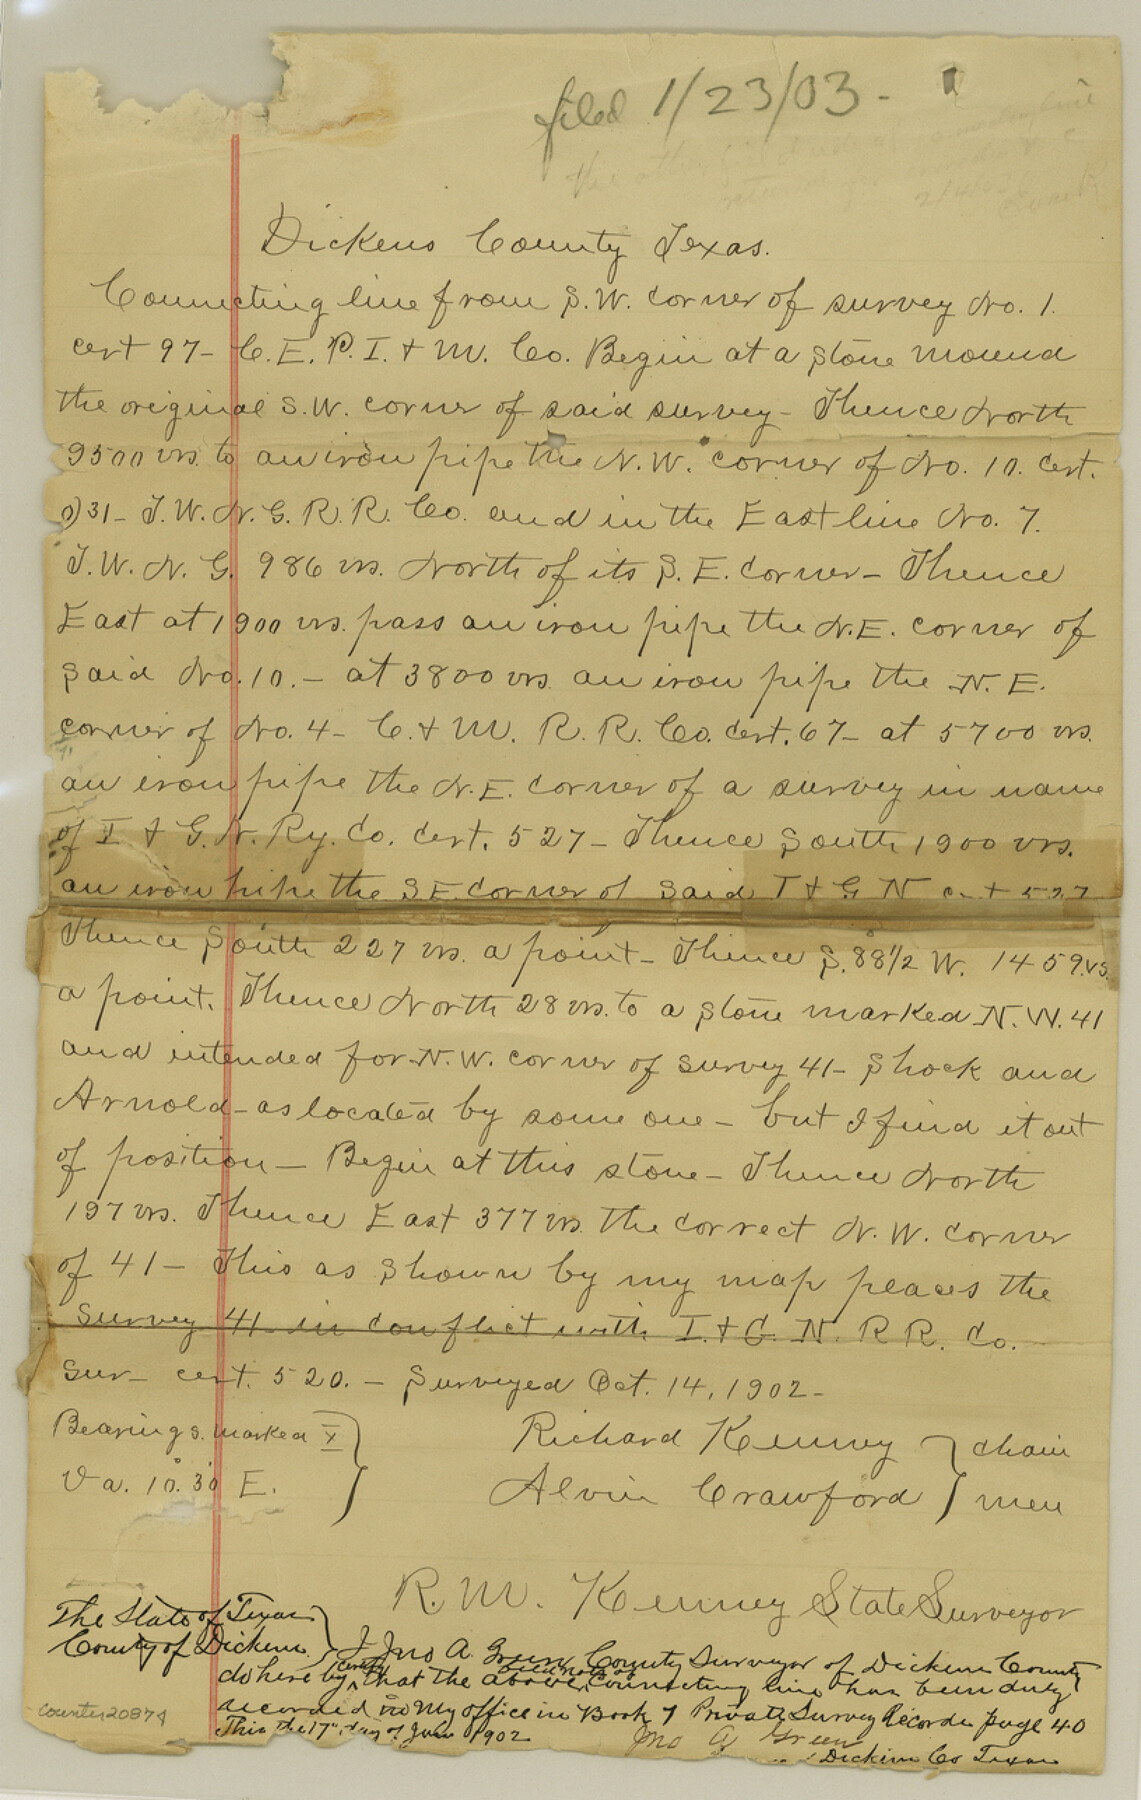 filed 1/23/03 -
Dickens County Texas.
Connecting line from S.W. corner of survey No. 1.
cert 97- C. E. P. I. & M. Co. Begin at a stone mound
the original S.W. corner of said survey - Thence North
9500 vrs. to an iron pipe the N.W. corner of No. 10. Cert.
31- T. W. N. G. R. R. Co. and in the East line No. 7.
T. W. N. G. 986 vrs. North of its S. E. corner - Thence
East at 1900 vrs. pass an iron pipe the N.E. corner of
said No. 10. - at 3800 vrs. an iron pipe the N. E.
corner of No. 4 - C. & M. R. R. Co. Cert. 67- at 5700 vrs.
an iron pipe the N.E. corner of a survey in name
of I. & G. N. Ry. Co. Cert. 527 - Thence South 1900 vrs.
an iron pipe the S E. corner of said I & G N cert 527
Thence South 227 vrs. a point - Thence S. 88 1/2 W. 1459. vs.
a point. Thence North 28 vrs. to a stone marked N. W. 41
and intended for N. W. corner of survey 41 - Shock and
Arnold - as located by some one - but I find it out
of position - Begin at this stone - Thence North
197 vrs. Thence East 377 vrs. the correct N. W. corner
of 41 - This as shown by my map places the
survey 41 in conflict with I. & G. N. R R. Co.
sur - cert. 520. - Surveyed Oct. 14, 1902 -
Bearings marked X
Va. 10°. 30' E.
Richard Kenney
Alvin Crawford
chain
men
R. M. Kenney State Surveyor
The State of Texas
County of Dickens
I Jno A. Green County Surveyor of Dickens County
do here by certify that the above field notes of Connecting line has been duly
recorded in my office in Book 7 Private Survey Records page 40
This the 17" day of 1902
Jno A Green
Dickens Co Texas
counter20874